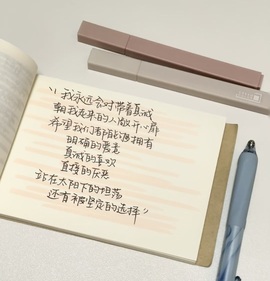 “我永远会对带着真诚
朝我走来的人敞开心扉
希望我们都能够拥有
明确的爱意
真诚的喜欢
直接的厌恶
站在太阳下的坦荡
还有被坚定的选择”